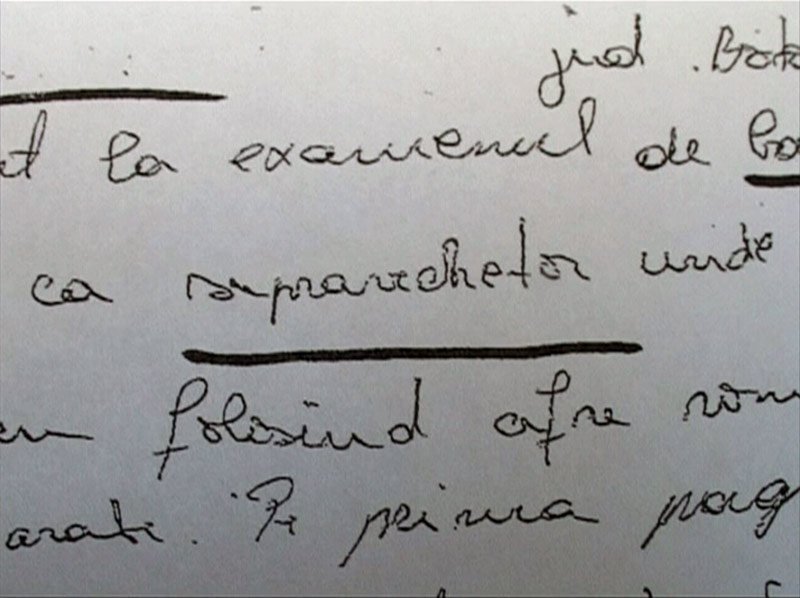 jud. Boto
at la examenul de ba
ca supravechetor unde
folosind cifre rom
arate. Pe prima pag